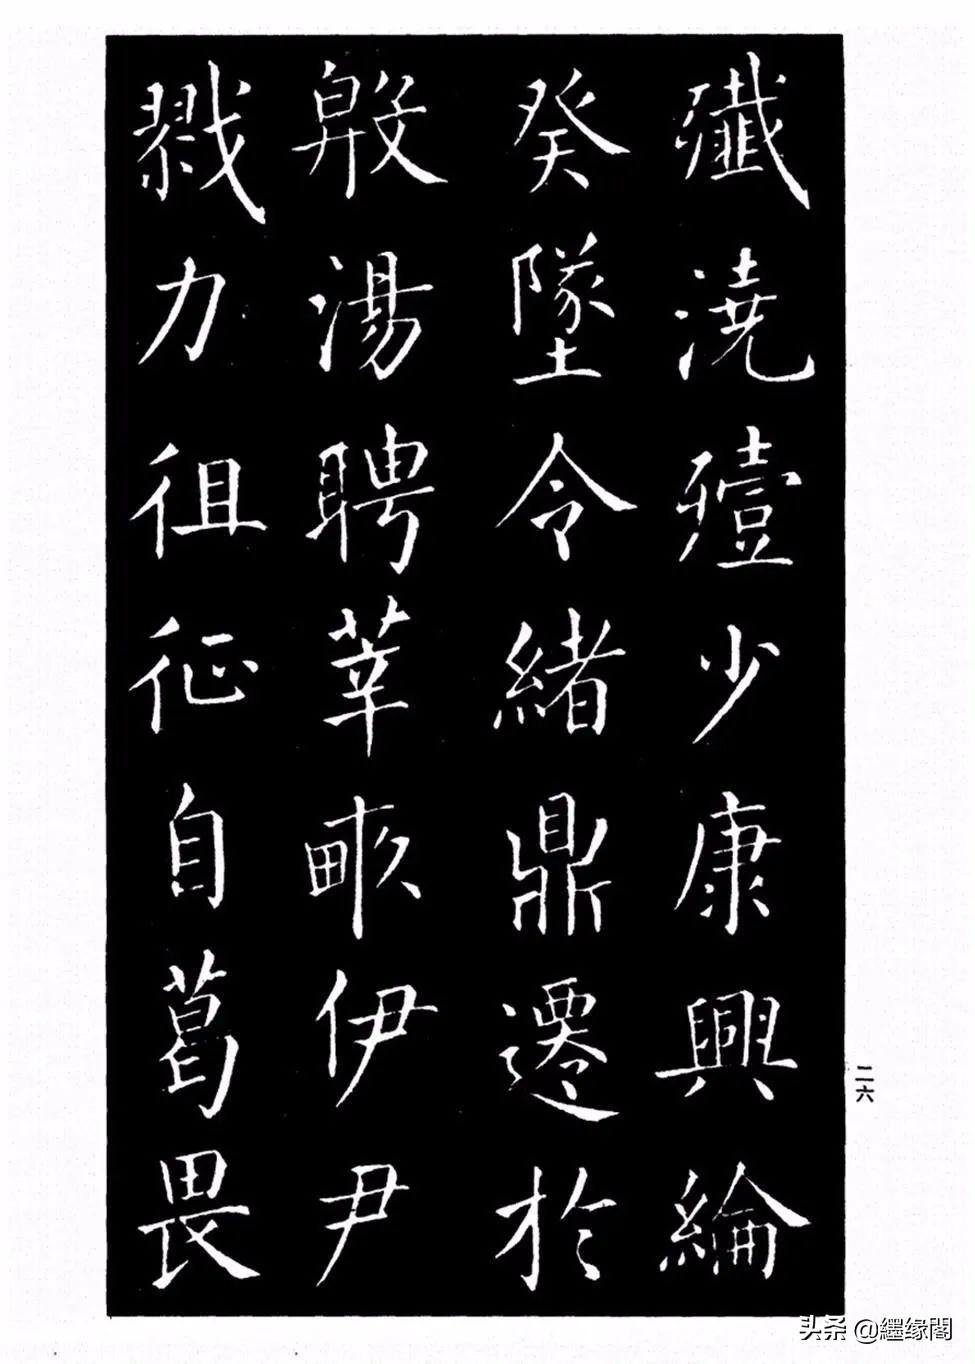 殲澆殪少康興綸
癸墜令緒鼎遷於
殷湯聘莘畎伊尹
戮力徂征自葛畏
二六
头条 @纆缘閣